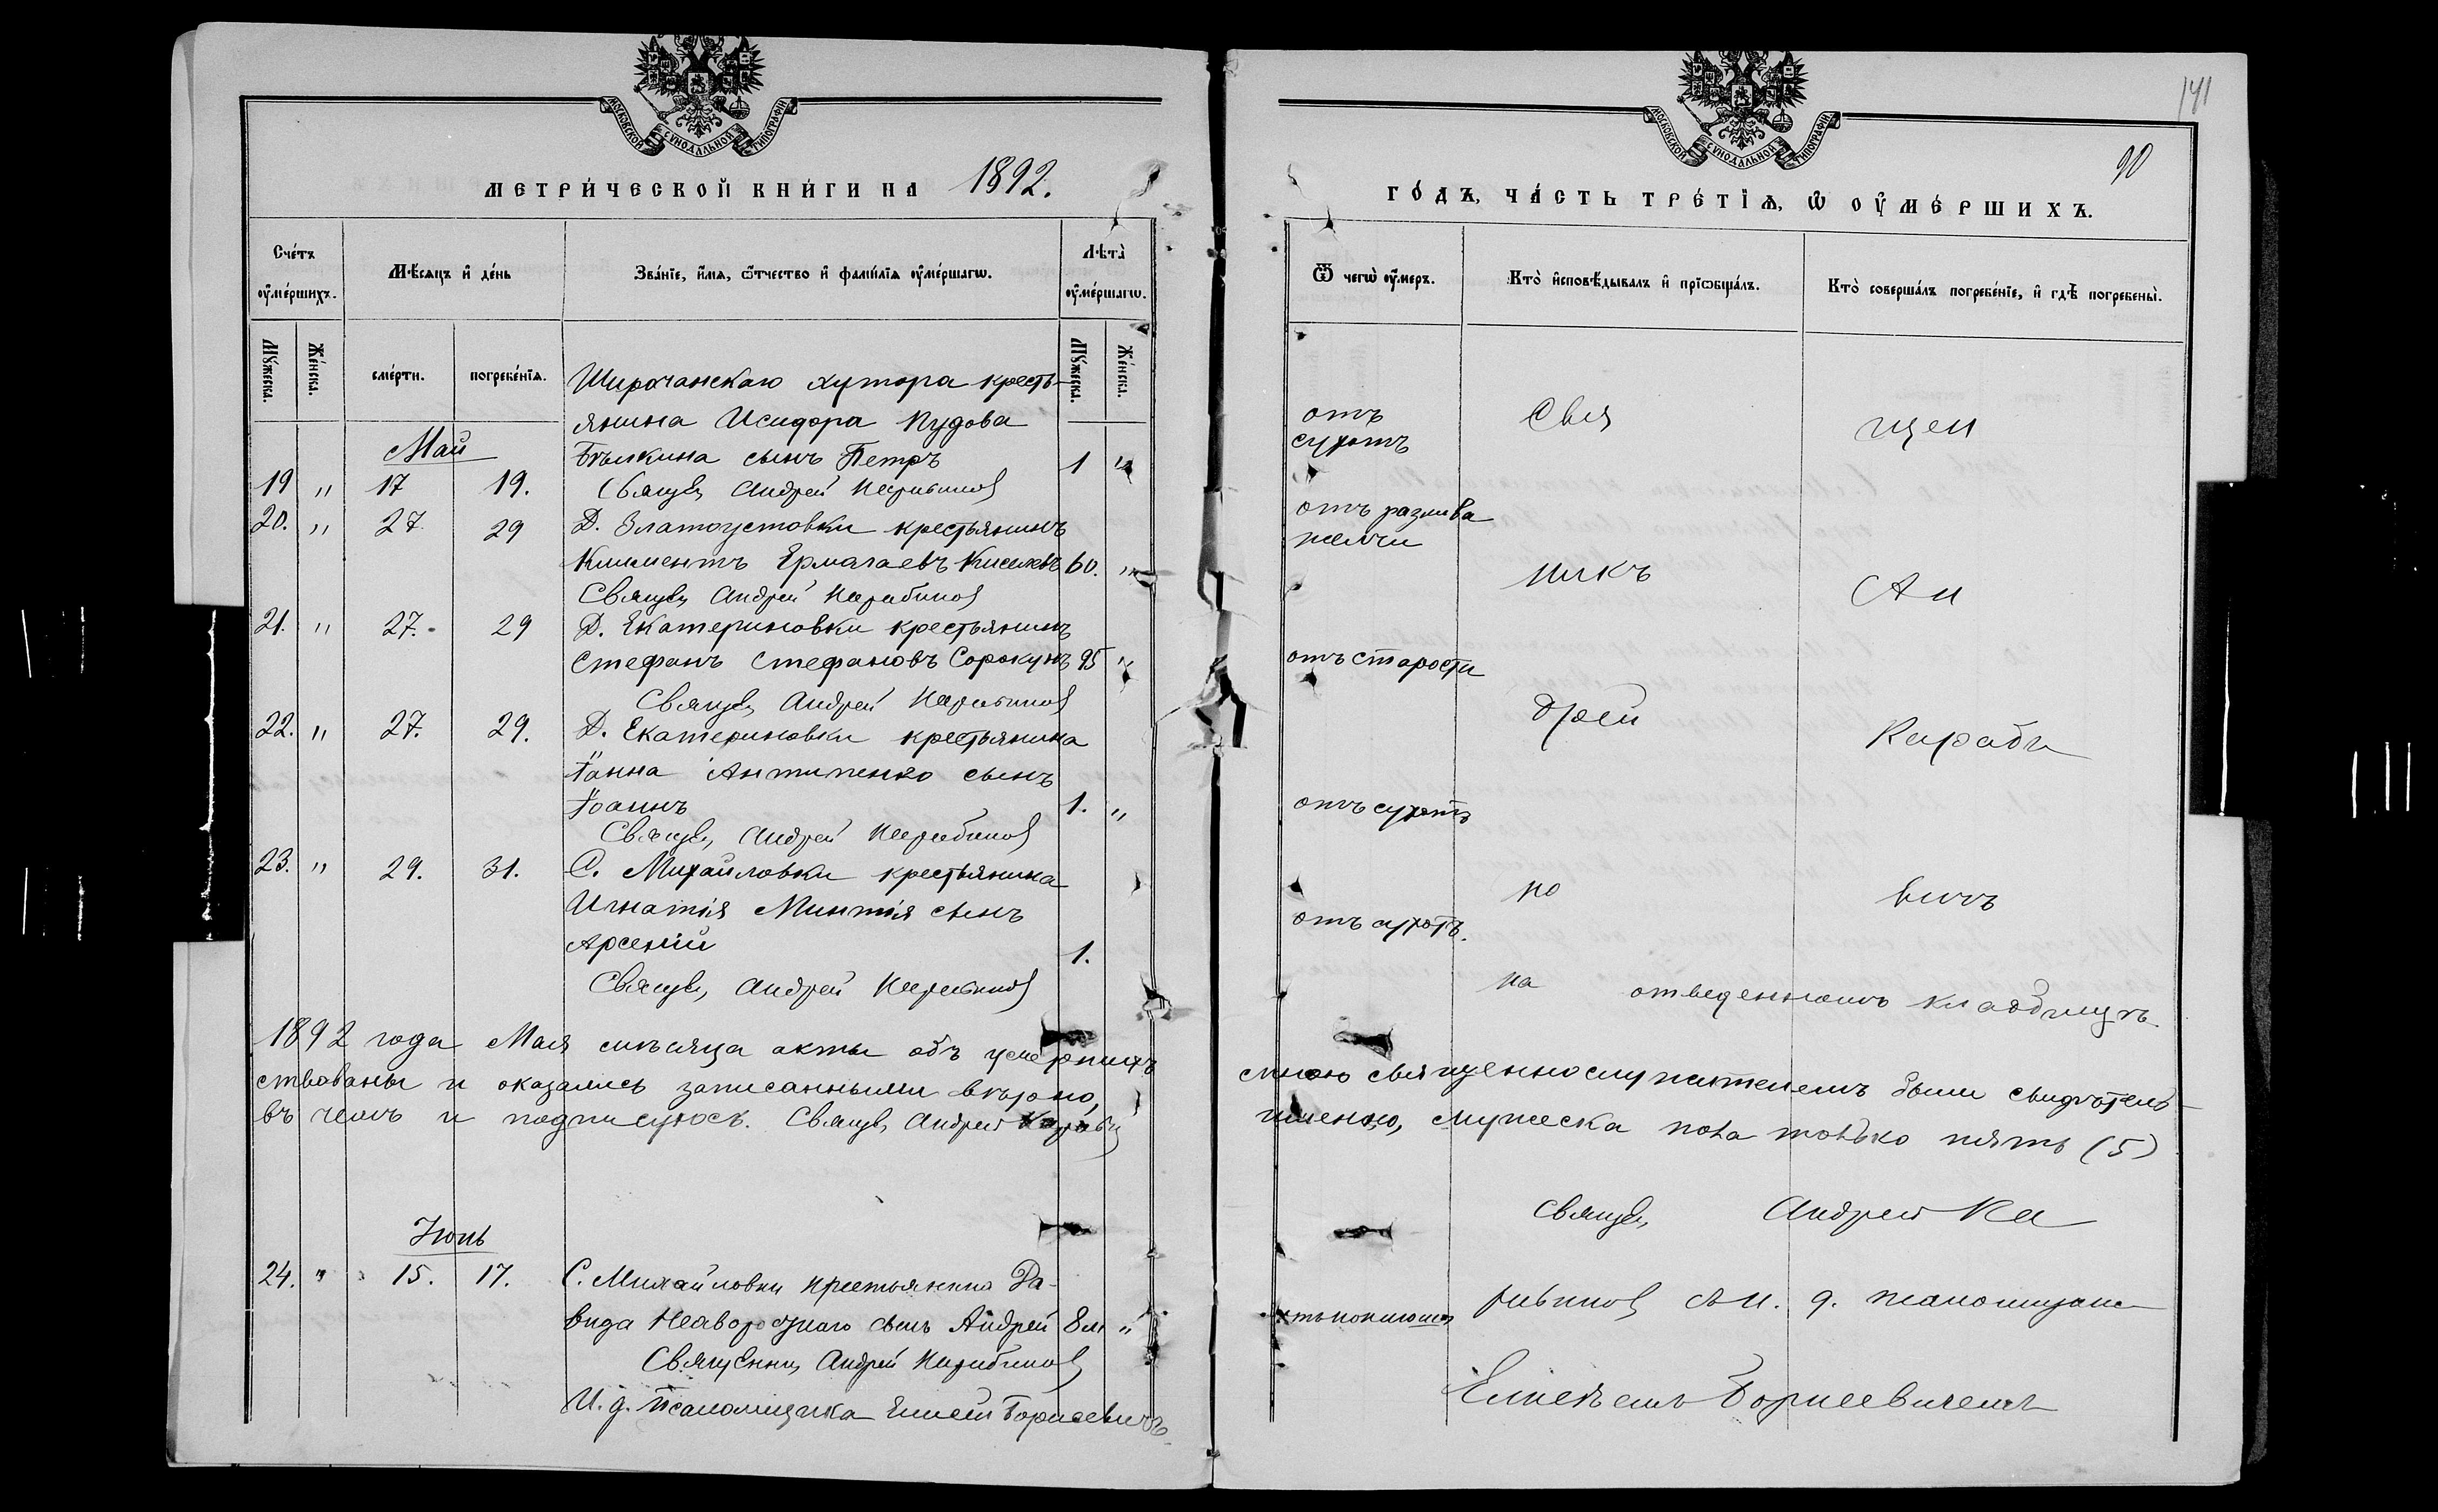 МОСКОВСКОЙ СѴНОДАЛЬНОЙ ТИПОГРАФІИ
МЕТРИ́ЧЕСКОЙ КНИ́ГИ НА 1892.
Сче́тъ оу҆ме́ршихъ.
Мѣ́сяцъ и҆ де́нь
Зва́нїе, и҆́мя, ѻ҆́тчество и҆ фами́лїя оу҆ме́ршагѡ.
Лѣта̀ оу҆ме́ршагѡ.
Му́жеска.
Же́нска.
сме́рти.
погребе́нїѧ.
Му́жеска.
Же́нска.
Широчанскаго хутора кресть-
янина Исидора Пудова
Май
Бѣлкина сынъ Петръ 1 "
19 " 17 19. Священ Андрей Карабинов
20. " 27 29 Д. Златоустовки крестьянинъ
Климентъ Ермолаевъ Киселевъ 60. "
Священ Андрей Карабинов
21. " 27. 29 Д. Екатериновки крестьянинъ
Стефанъ Стефановъ Сорокунъ 95 "
Священ Андрей Карабинов
22. " 27. 29. Д. Екатериновки крестьянина
Іоанна Антипенко сынъ
Іоаннъ 1. "
Священ Андрей Карабинов
23. " 29. 31. С. Михайловки крестьянина
Игнатія Минтія сынъ
Арсеній 1.
Священ Андрей Карабинов
1892 года Мая мѣсяца акты объ умершихъ
ствованы и оказались записанными вѣрно,
въ чемъ и подписуюсь. Священ Андрей Караби
Іюнь
24. " 15. 17. С. Михайловки крестьянина Да-
вида сынъ Андрей 8 м "
Священни Андрей Карабинов
И. д. Псаломщика Елисей Борисевичъ
141
МОСКОВСКОЙ СѴНОДАЛЬНОЙ ТИПОГРАФІИ
90
ГО́ДЪ, ЧА́СТЬ ТРЕ́ТІѦ, Ѡ҆ ОУ҆МЕ́РШИХЪ.
Ѿ чегѡ̀ оу҆́меръ.
Кто̀ и҆сповѣ́дывалъ и҆ прїѡбща́лъ.
Кто̀ соверша́лъ погребе́нїе, и҆ гдѣ̀ погребены̀.
отъ
сухотъ
Свя
щен
отъ разлива
желчи
никъ
Ан
отъ старости
дрей
Караби
отъ сухотъ
но
вичъ
отъ сухотъ.
на отведенномъ кладбищѣ
мною священнослужителемъ были свидѣтель-
именно, мужеска пола только пять (5)
Священ Андрей Ка
рабинов съ И. д. псаломщика
Елисеемъ Борисевичемъ